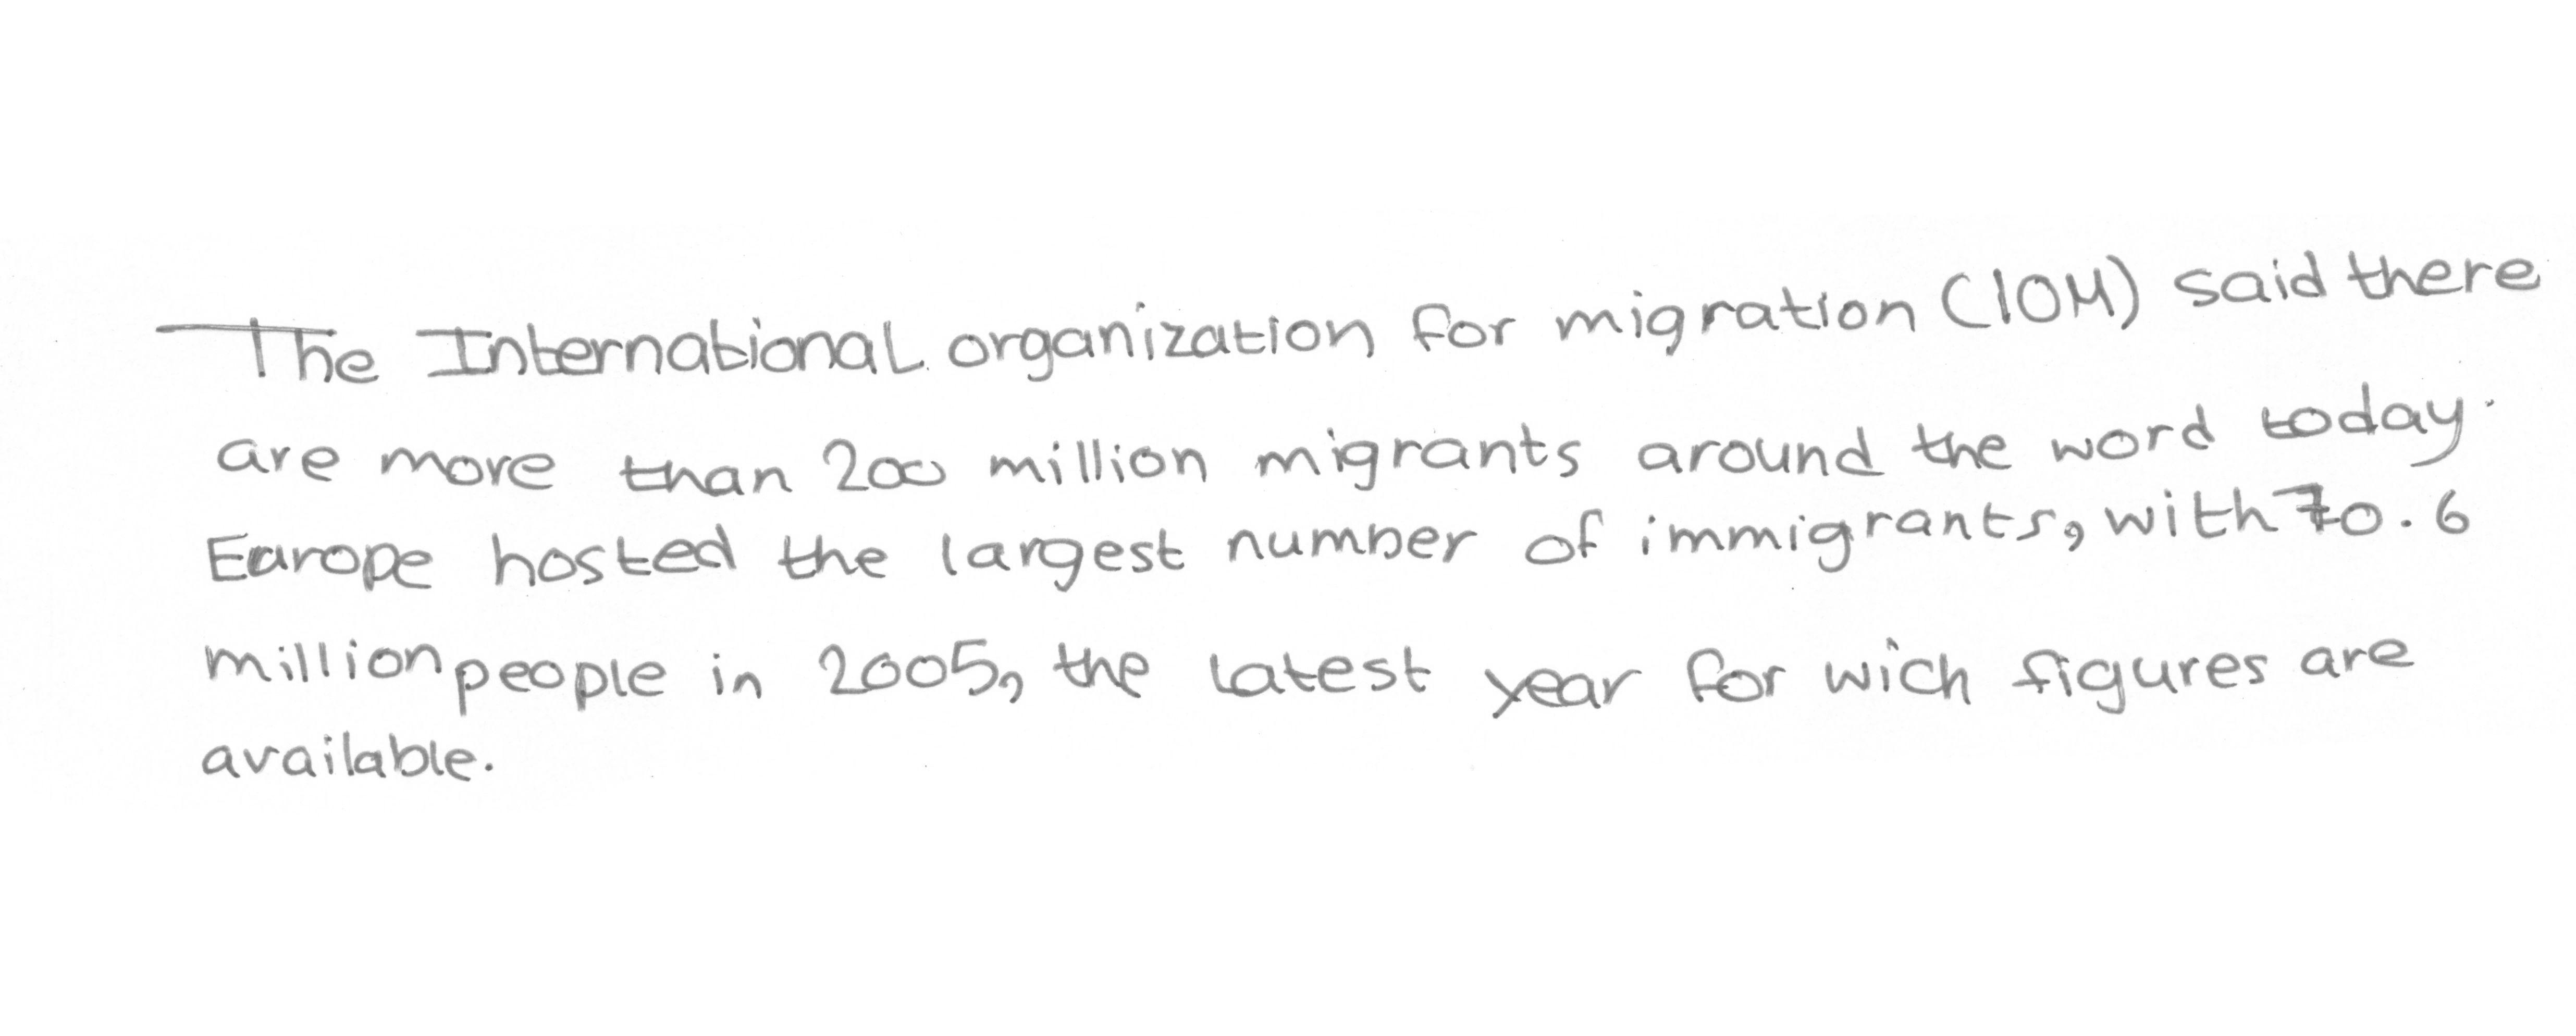 The International organization for migration (IOM) said there
are more than 200 million migrants around the word today.
Europe hosted the largest number of immigrants, with 70.6
million people in 2005, the latest year for wich figures are
available.